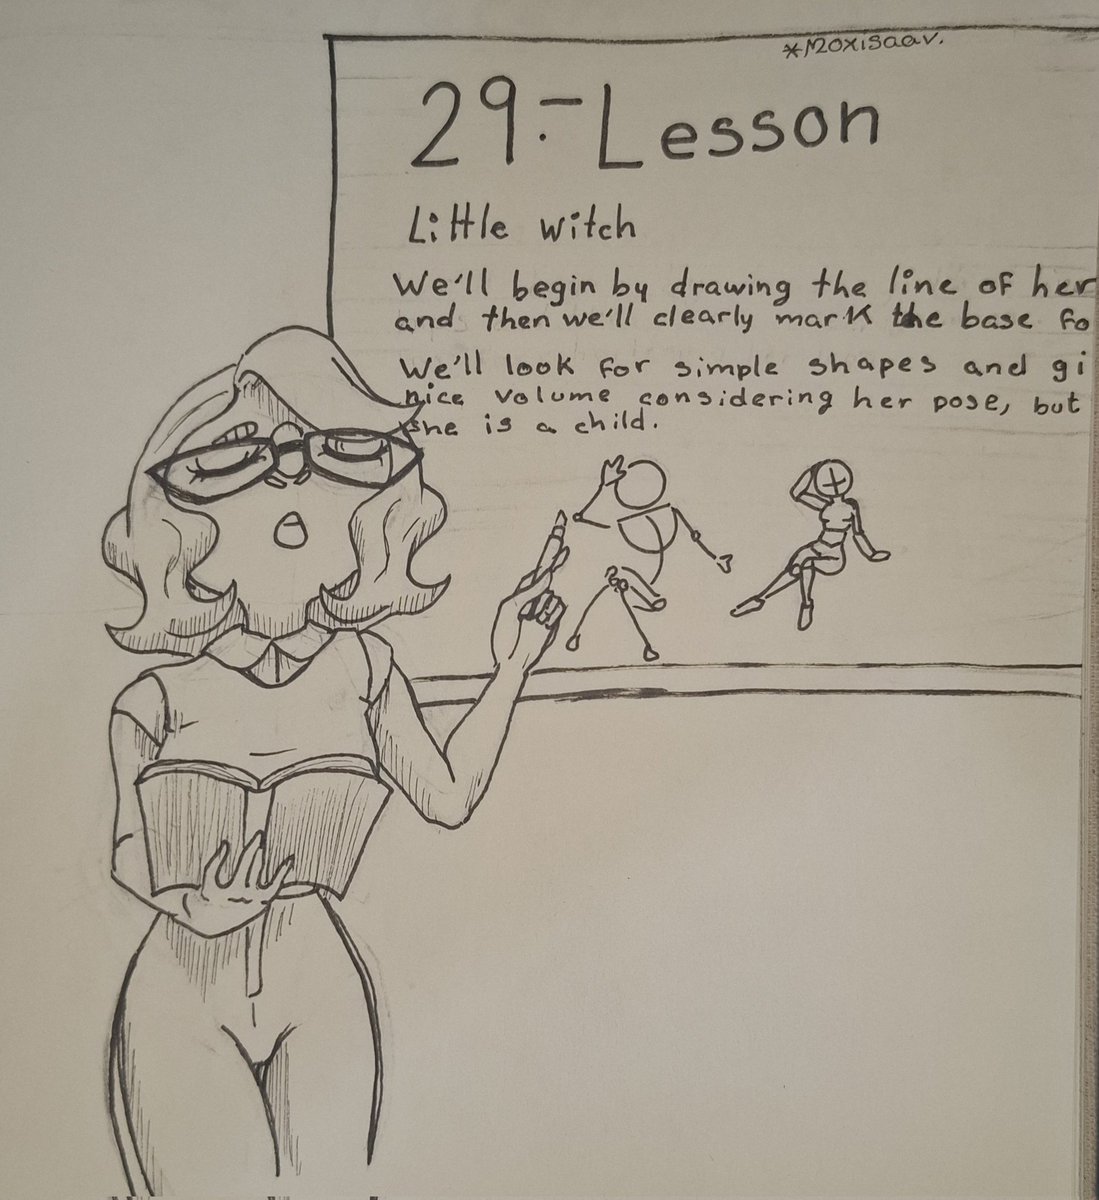 *Moxisaav.
29.- Lesson
Little witch
We'll begin by drawing the line of her
and then we'll clearly mark the base fo
We'll look for simple shapes and gi
nice volume considering her pose, but
she is a child.